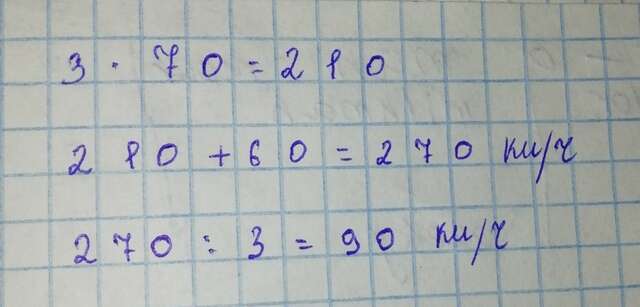 3 · 70 = 210
210 + 60 = 270 км/ч
270 : 3 = 90 км/ч